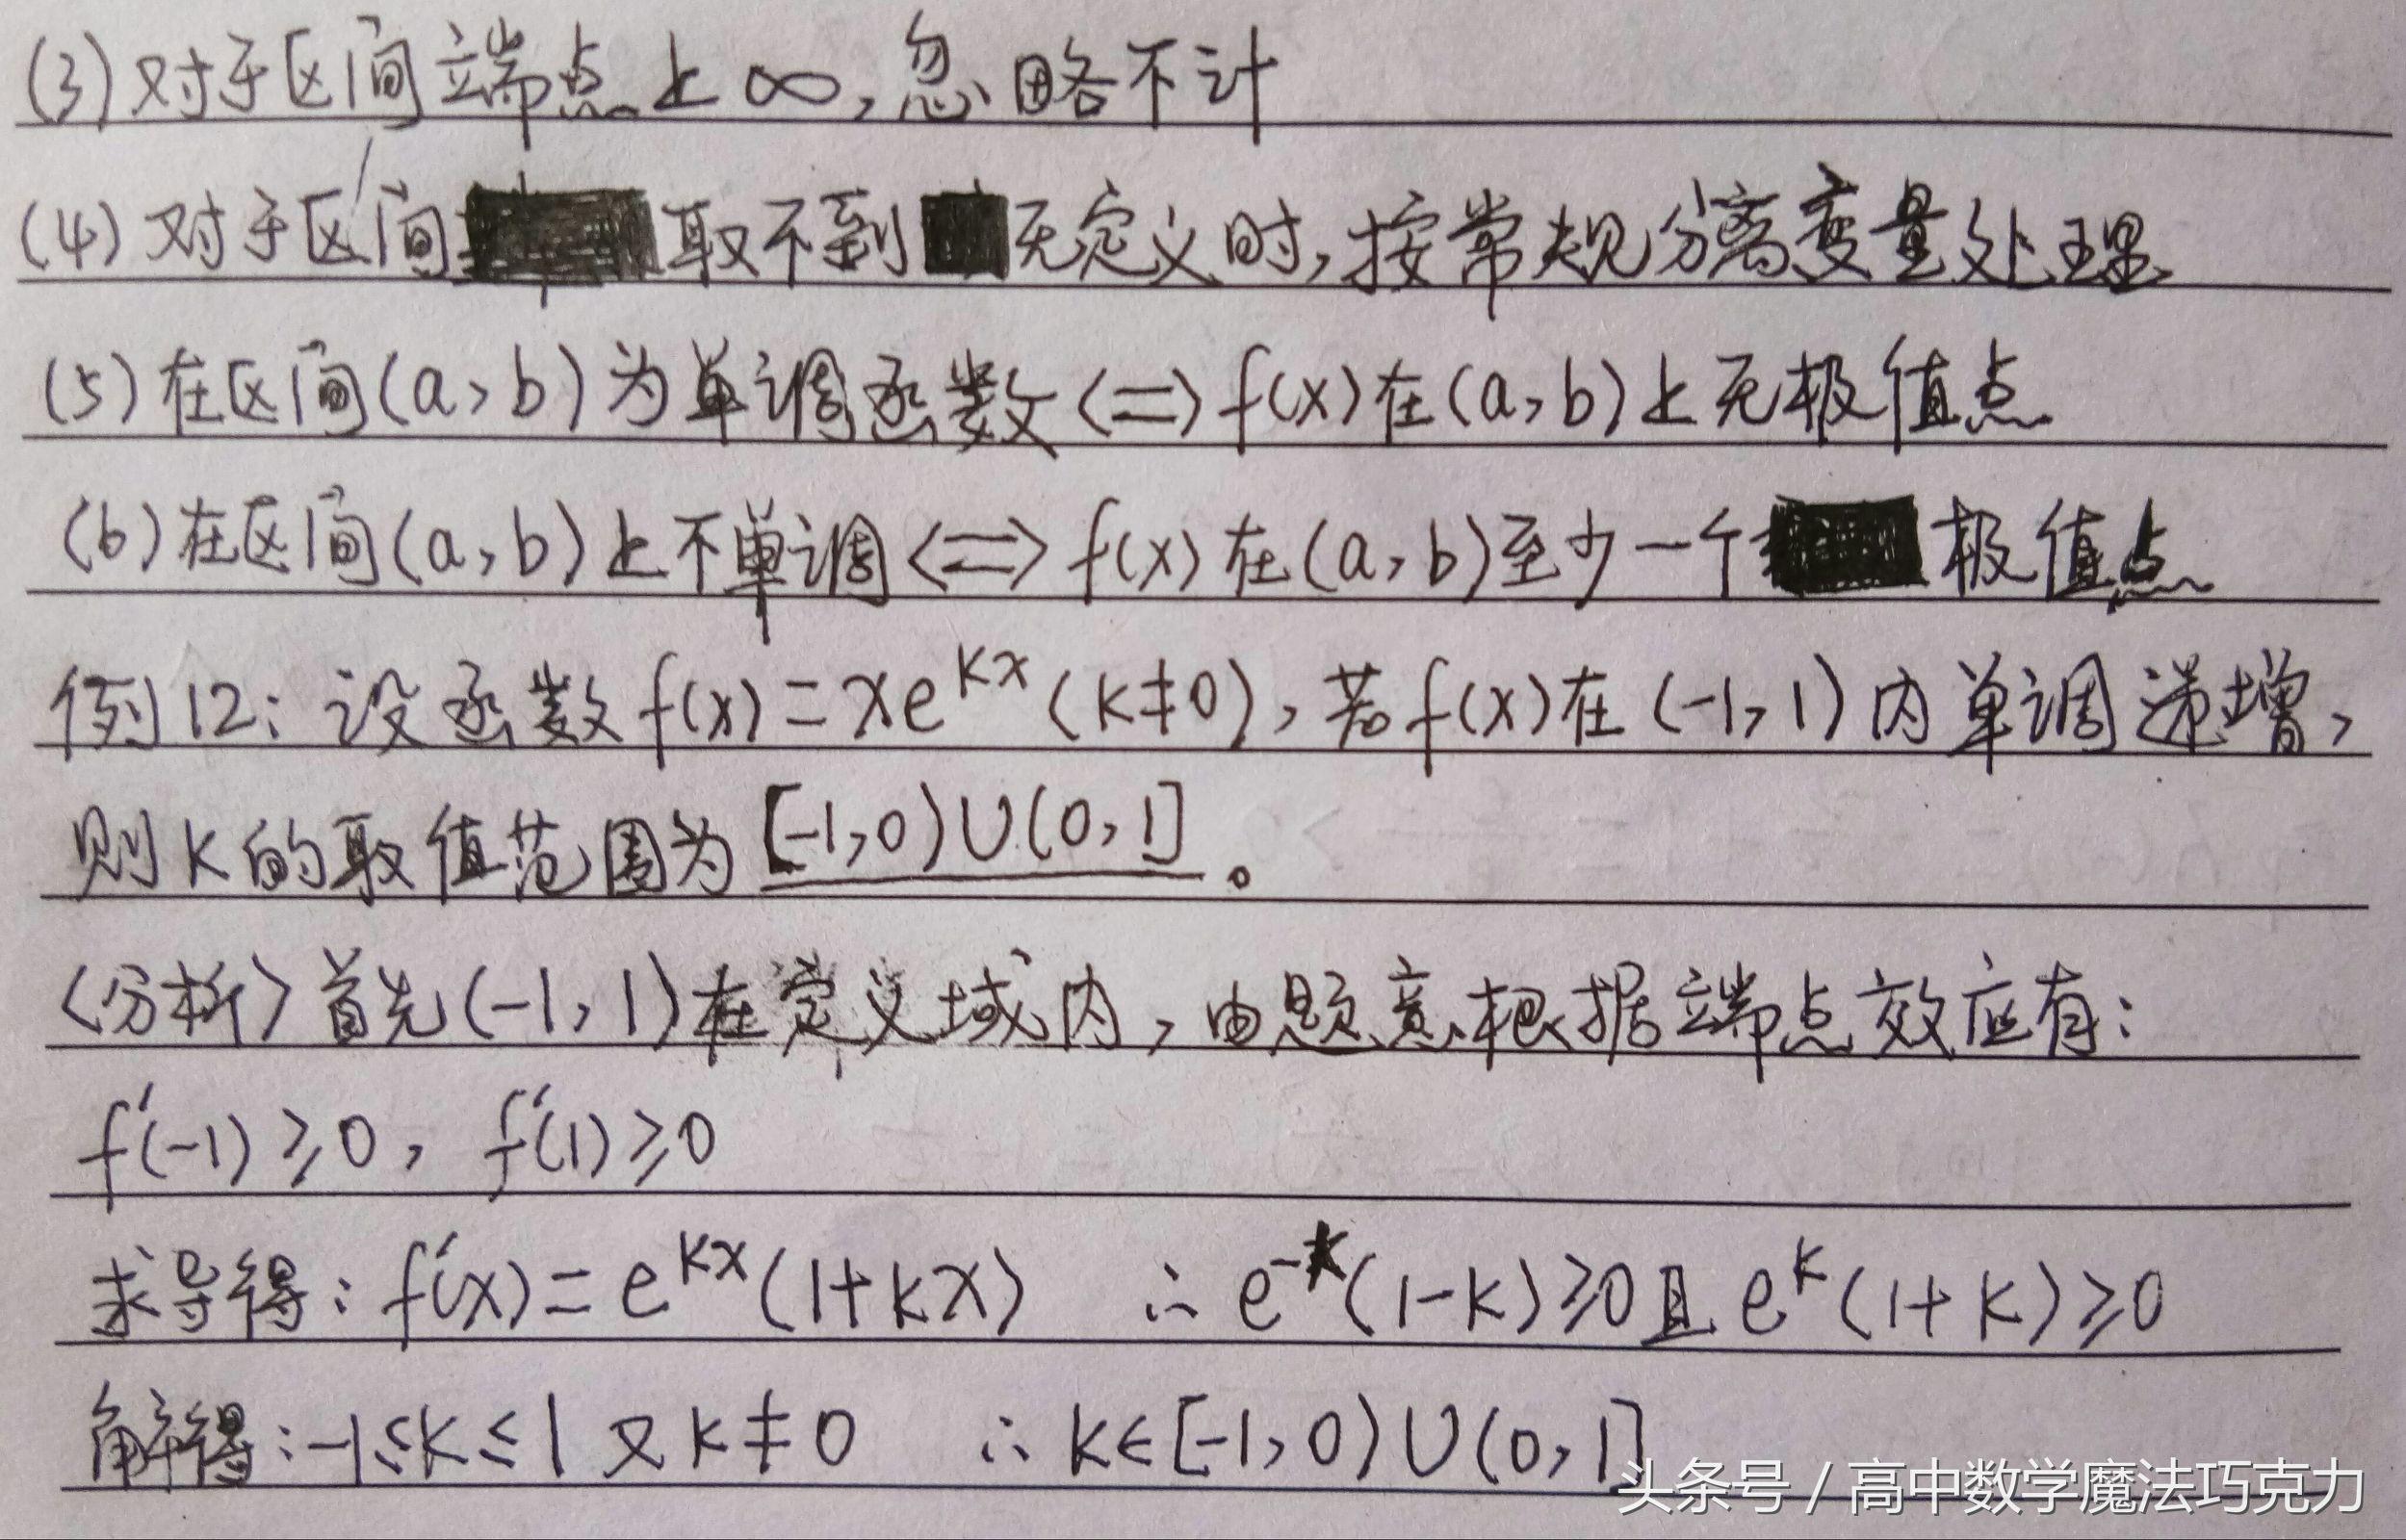 (3)对于区间端点上∞,忽略不计
(4)对于区间取不到无定义时,按常规分离变量处理
(5)在区间(a,b)为单调函数<=>f(x)在(a,b)上无极值点
(6)在区间(a,b)上不单调<=>f(x)在(a,b)至少一个极值点
例12:设函数f(x)=xe^{kx}(k≠0),若f(x)在(-1,1)内单调递增,
则k的取值范围为[-1,0)∪(0,1]。
<分析>首先(-1,1)在定义域内,由题意根据端点效应有:
f'(-1)≥0,f'(1)≥0
求导得:f'(x)=e^{kx}(1+kx) ∴e^{-k}(1-k)≥0且e^{k}(1+k)≥0
解得:-1≤k≤1又k≠0 ∴k∈[-1,0)∪(0,1]
头条号/高中数学魔法巧克力